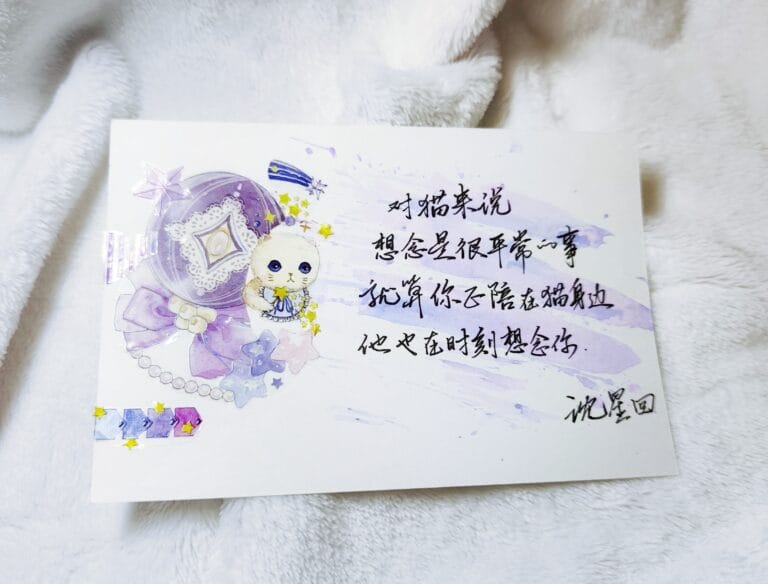 对猫来说
想念是很平常的事
就算你正陪在猫身边
他也在时刻想念你.
沈星回